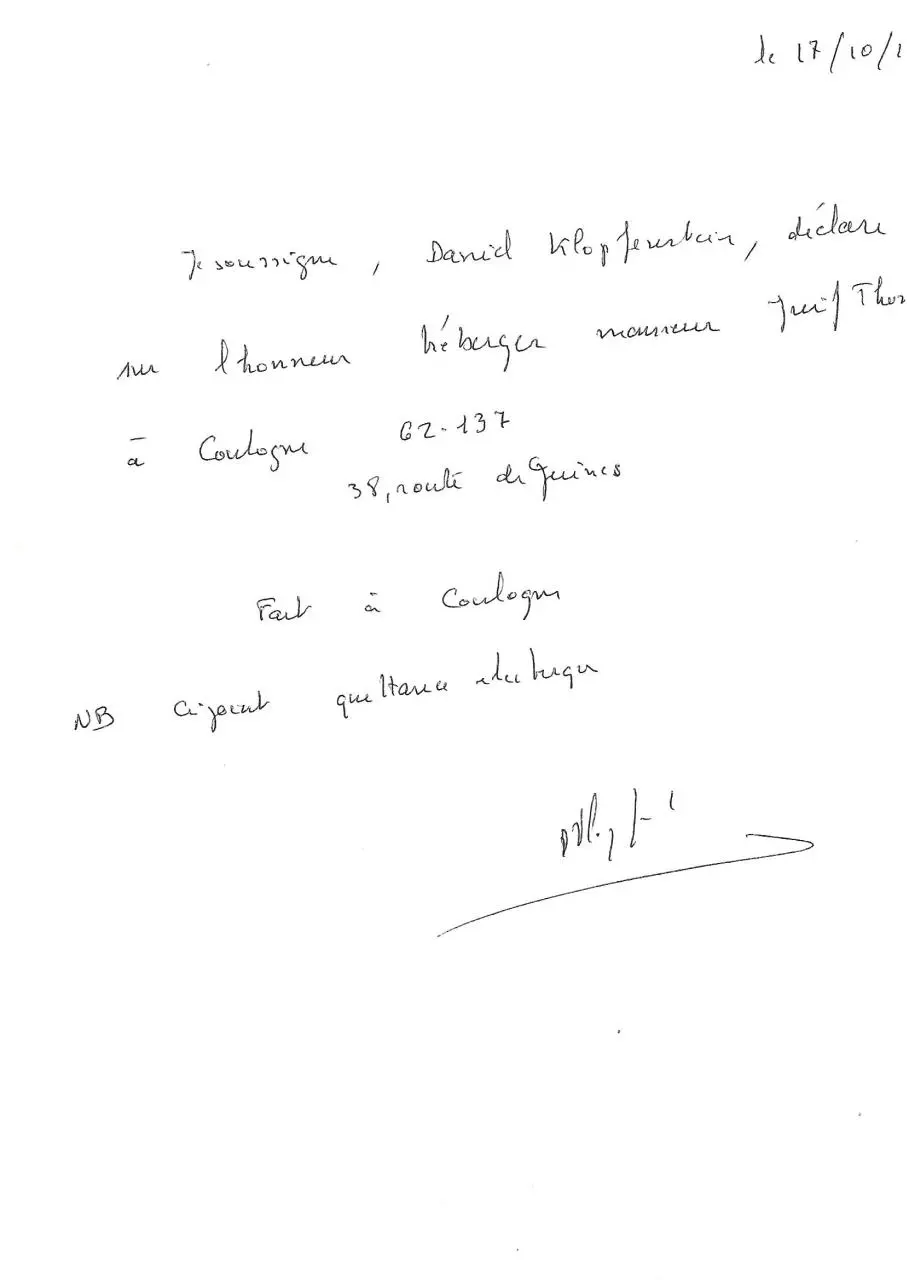 le 17/10/1
Je soussigne, David Klopfenstein, déclare
sur l'honneur héberger monsieur Thor
à Coulogne 62-137
38, route de Guines
Fait à Coulogne
NB Ci-joint quittance